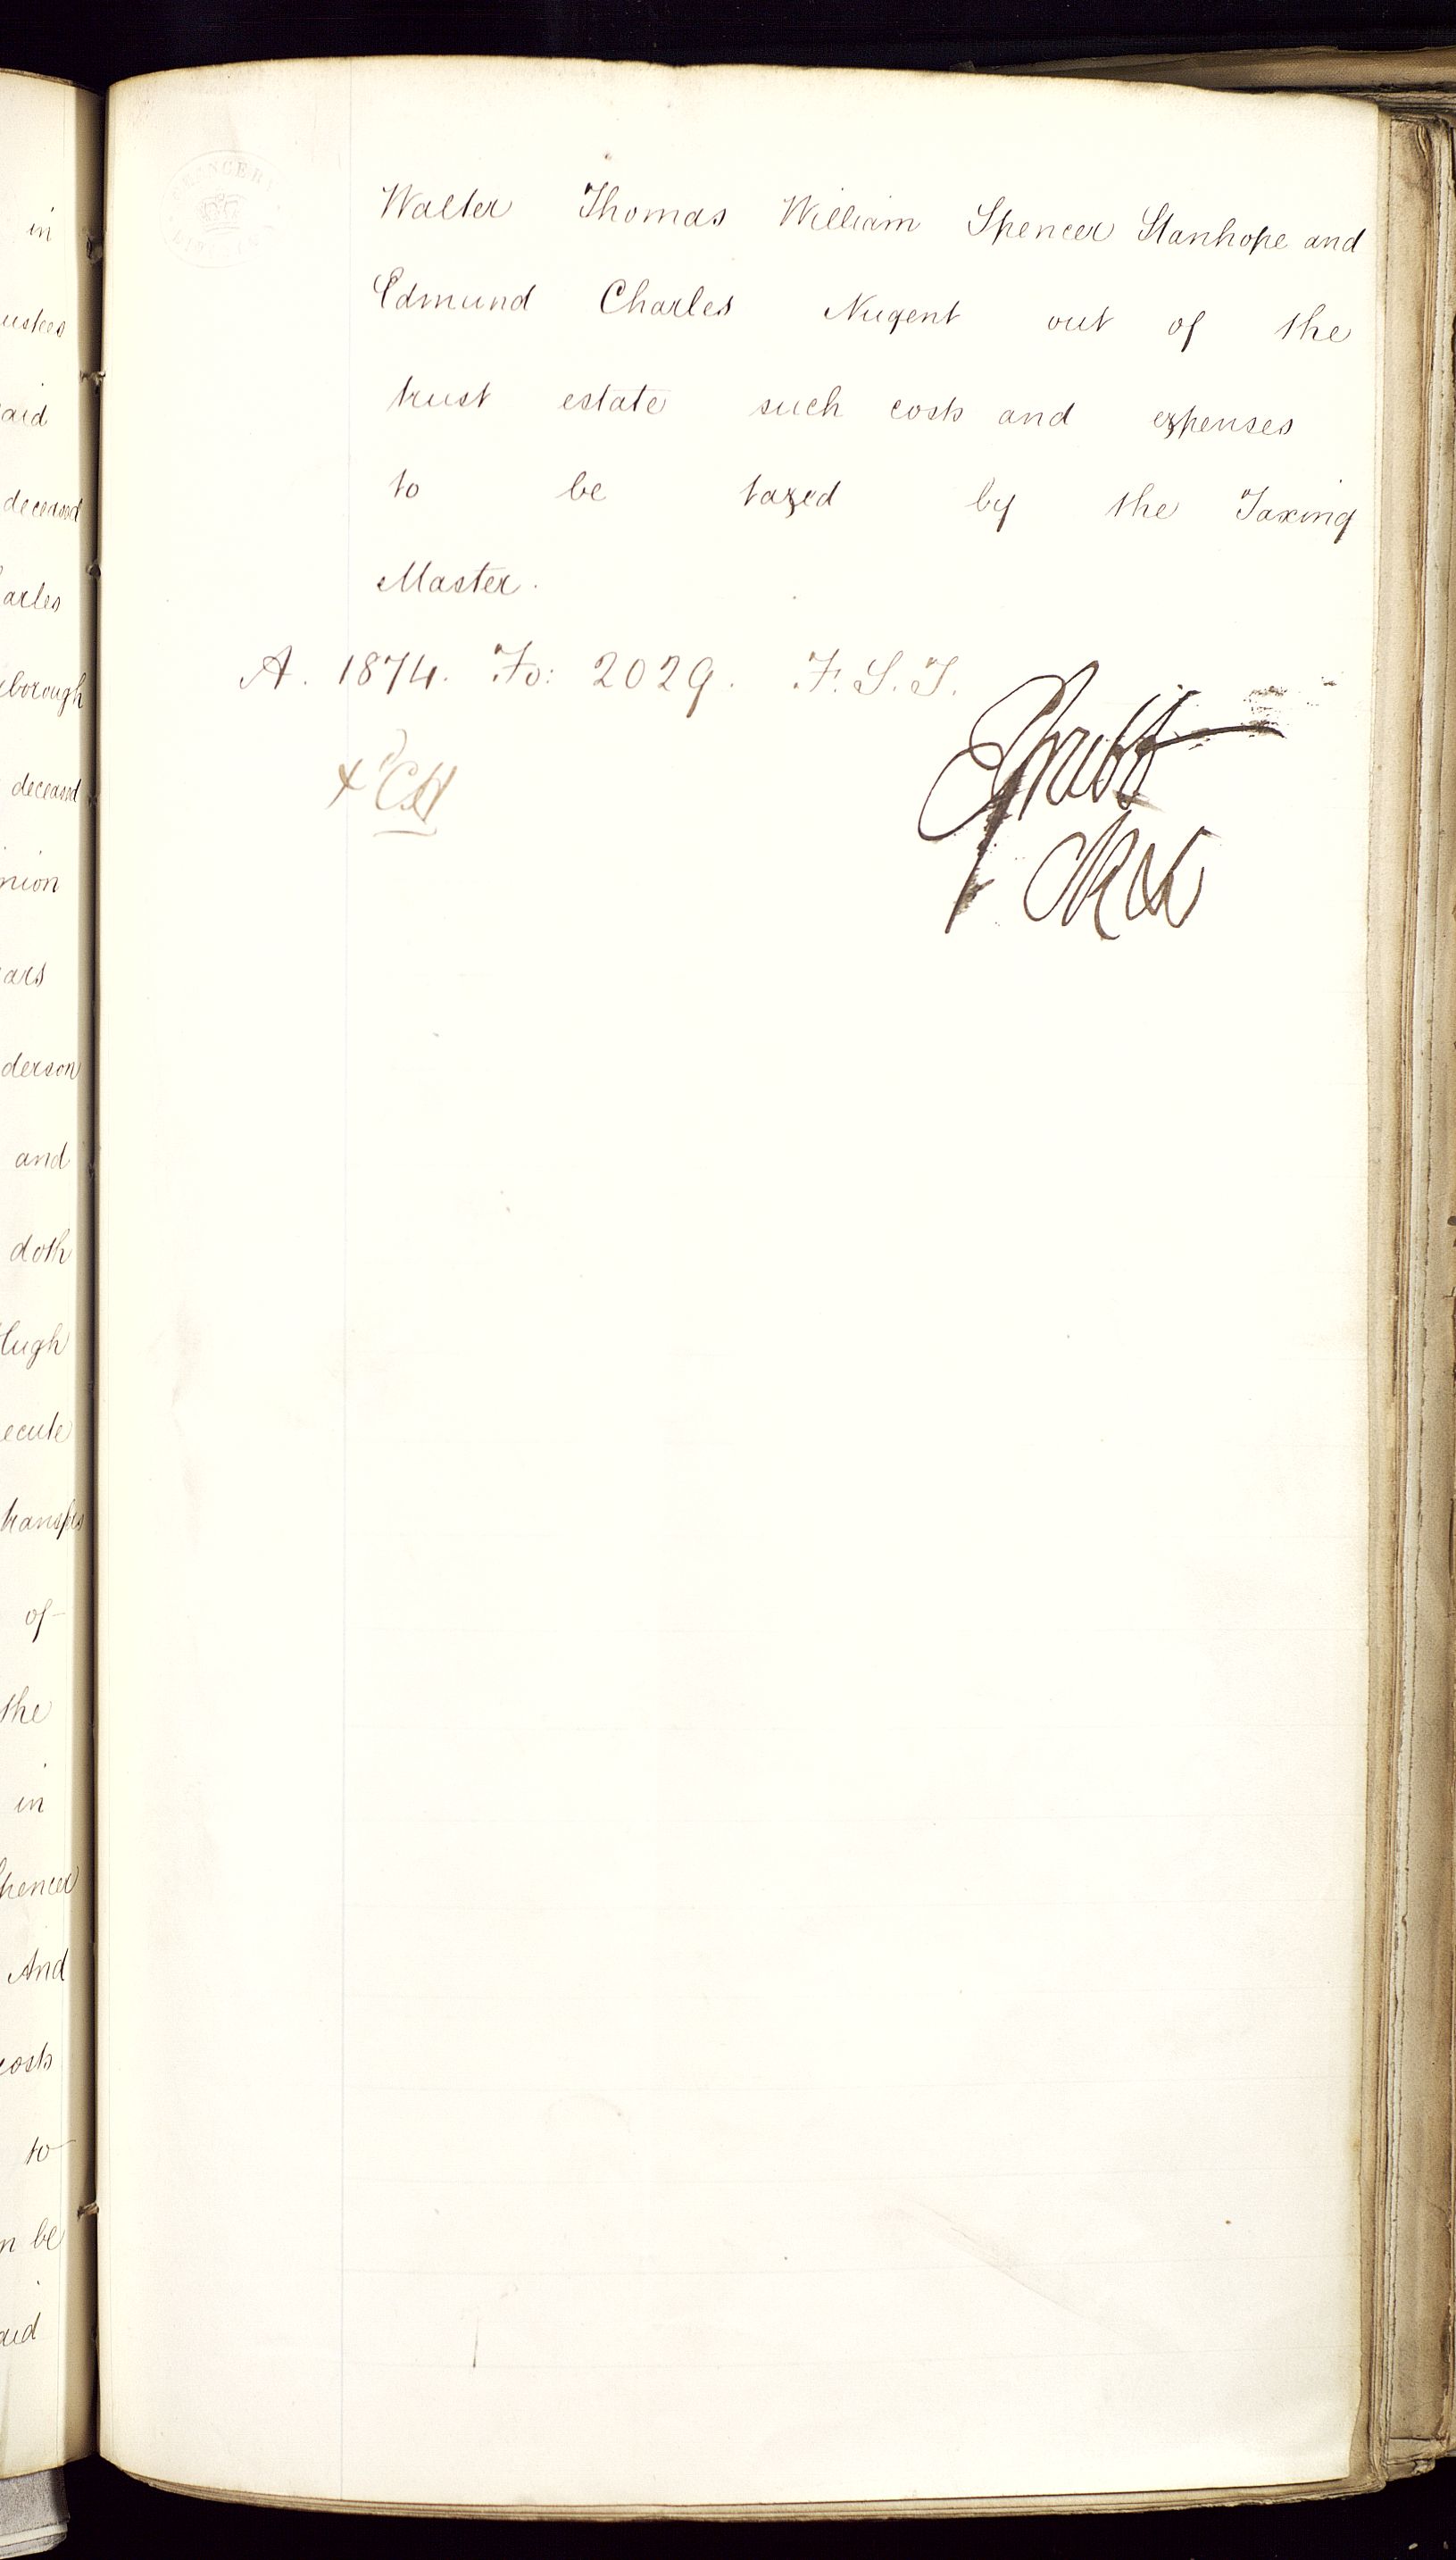 Walter Thomas William Spencer Stanhope and
Edmund Charles Nugent out of the
trust estate such costs and expenses
to be taxed by the Taxing
Master.
A. 1874. Fo: 2029. F. S. T.
in
aid
deceased
arles
borough
deceased
nion
ars
derson
and
doth
Hugh
ecute
transfer
of
the
in
Spencer
And
costs
to
n be
aid